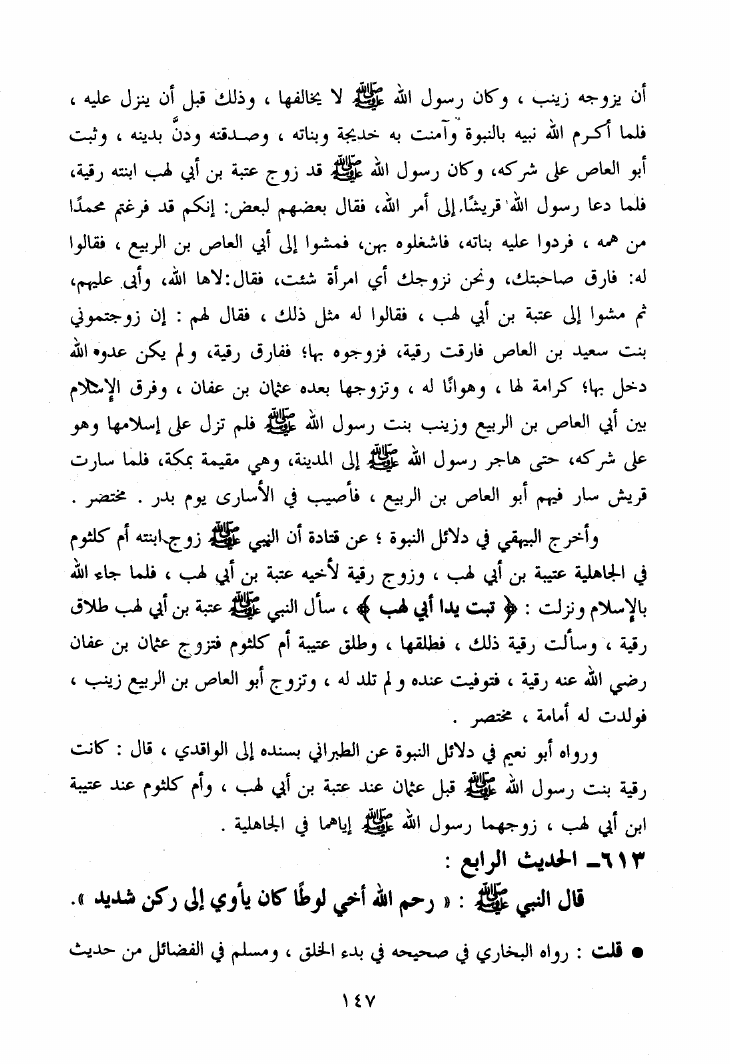 أن يزوجه زينب ، وكان رسول الله ﷺ لا يخالفها ، وذلك قبل أن ينزل عليه ،
فلما أكرم الله نبيه بالنبوة وآمنت به خديجة وبناته ، وصدقنه ودنَّ بدينه ، وثبت
أبو العاص على شركه، وكان رسول الله ﷺ قد زوج عتبة بن أبي لهب ابنته رقية،
فلما دعا رسول الله قريشًا إلى أمر الله، فقال بعضهم لبعض: إنكم قد فرغتم محمدًا
من همه ، فردوا عليه بناته، فاشغلوه بهن، فمشوا إلى أبي العاص بن الربيع ، فقالوا
له: فارق صاحبتك، ونحن نزوجك أي امرأة شئت، فقال:لاها الله، وأبى عليهم،
ثم مشوا إلى عتبة بن أبي لهب ، فقالوا له مثل ذلك ، فقال لهم : إن زوجتموني
بنت سعيد بن العاص فارقت رقية، فزوجوه بها؛ ففارق رقية، ولم يكن عدوه الله
دخل بها؛ كرامة لها ، وهوانًا له ، وتزوجها بعده عثمان بن عفان ، وفرق الإسلام
بين أبي العاص بن الربيع وزينب بنت رسول الله ﷺ فلم تزل على إسلامها وهو
على شركه، حتى هاجر رسول الله ﷺ إلى المدينة، وهي مقيمة بمكة، فلما سارت
قريش سار فيهم أبو العاص بن الربيع ، فأصيب في الأسارى يوم بدر . مختصر .
وأخرج البيهقي في دلائل النبوة ؛ عن قتادة أن النبي ﷺ زوج ابنته أم كلثوم
في الجاهلية عتيبة بن أبي لهب ، وزوج رقية لأخيه عتبة بن أبي لهب ، فلما جاء الله
بالإسلام ونزلت : ﴿ تبت يدا أبي لهب ﴾ ، سأل النبي ﷺ عتبة بن أبي لهب طلاق
رقية ، وسألت رقية ذلك ، فطلقها ، وطلق عتيبة أم كلثوم فتزوج عثمان بن عفان
رضي الله عنه رقية ، فتوفيت عنده ولم تلد له ، وتزوج أبو العاص بن الربيع زينب ،
فولدت له أمامة ، مختصر .
ورواه أبو نعيم في دلائل النبوة عن الطبراني بسنده إلى الواقدي ، قال : كانت
رقية بنت رسول الله ﷺ قبل عثمان عند عتبة بن أبي لهب ، وأم كلثوم عند عتيبة
ابن أبي لهب ، زوجهما رسول الله ﷺ إياهما في الجاهلية .
٦١٣ــ الحديث الرابع :
قال النبي ﷺ : « رحم الله أخي لوطًا كان يأوي إلى ركن شديد ».
● قلت : رواه البخاري في صحيحه في بدء الخلق ، ومسلم في الفضائل من حديث
١٤٧